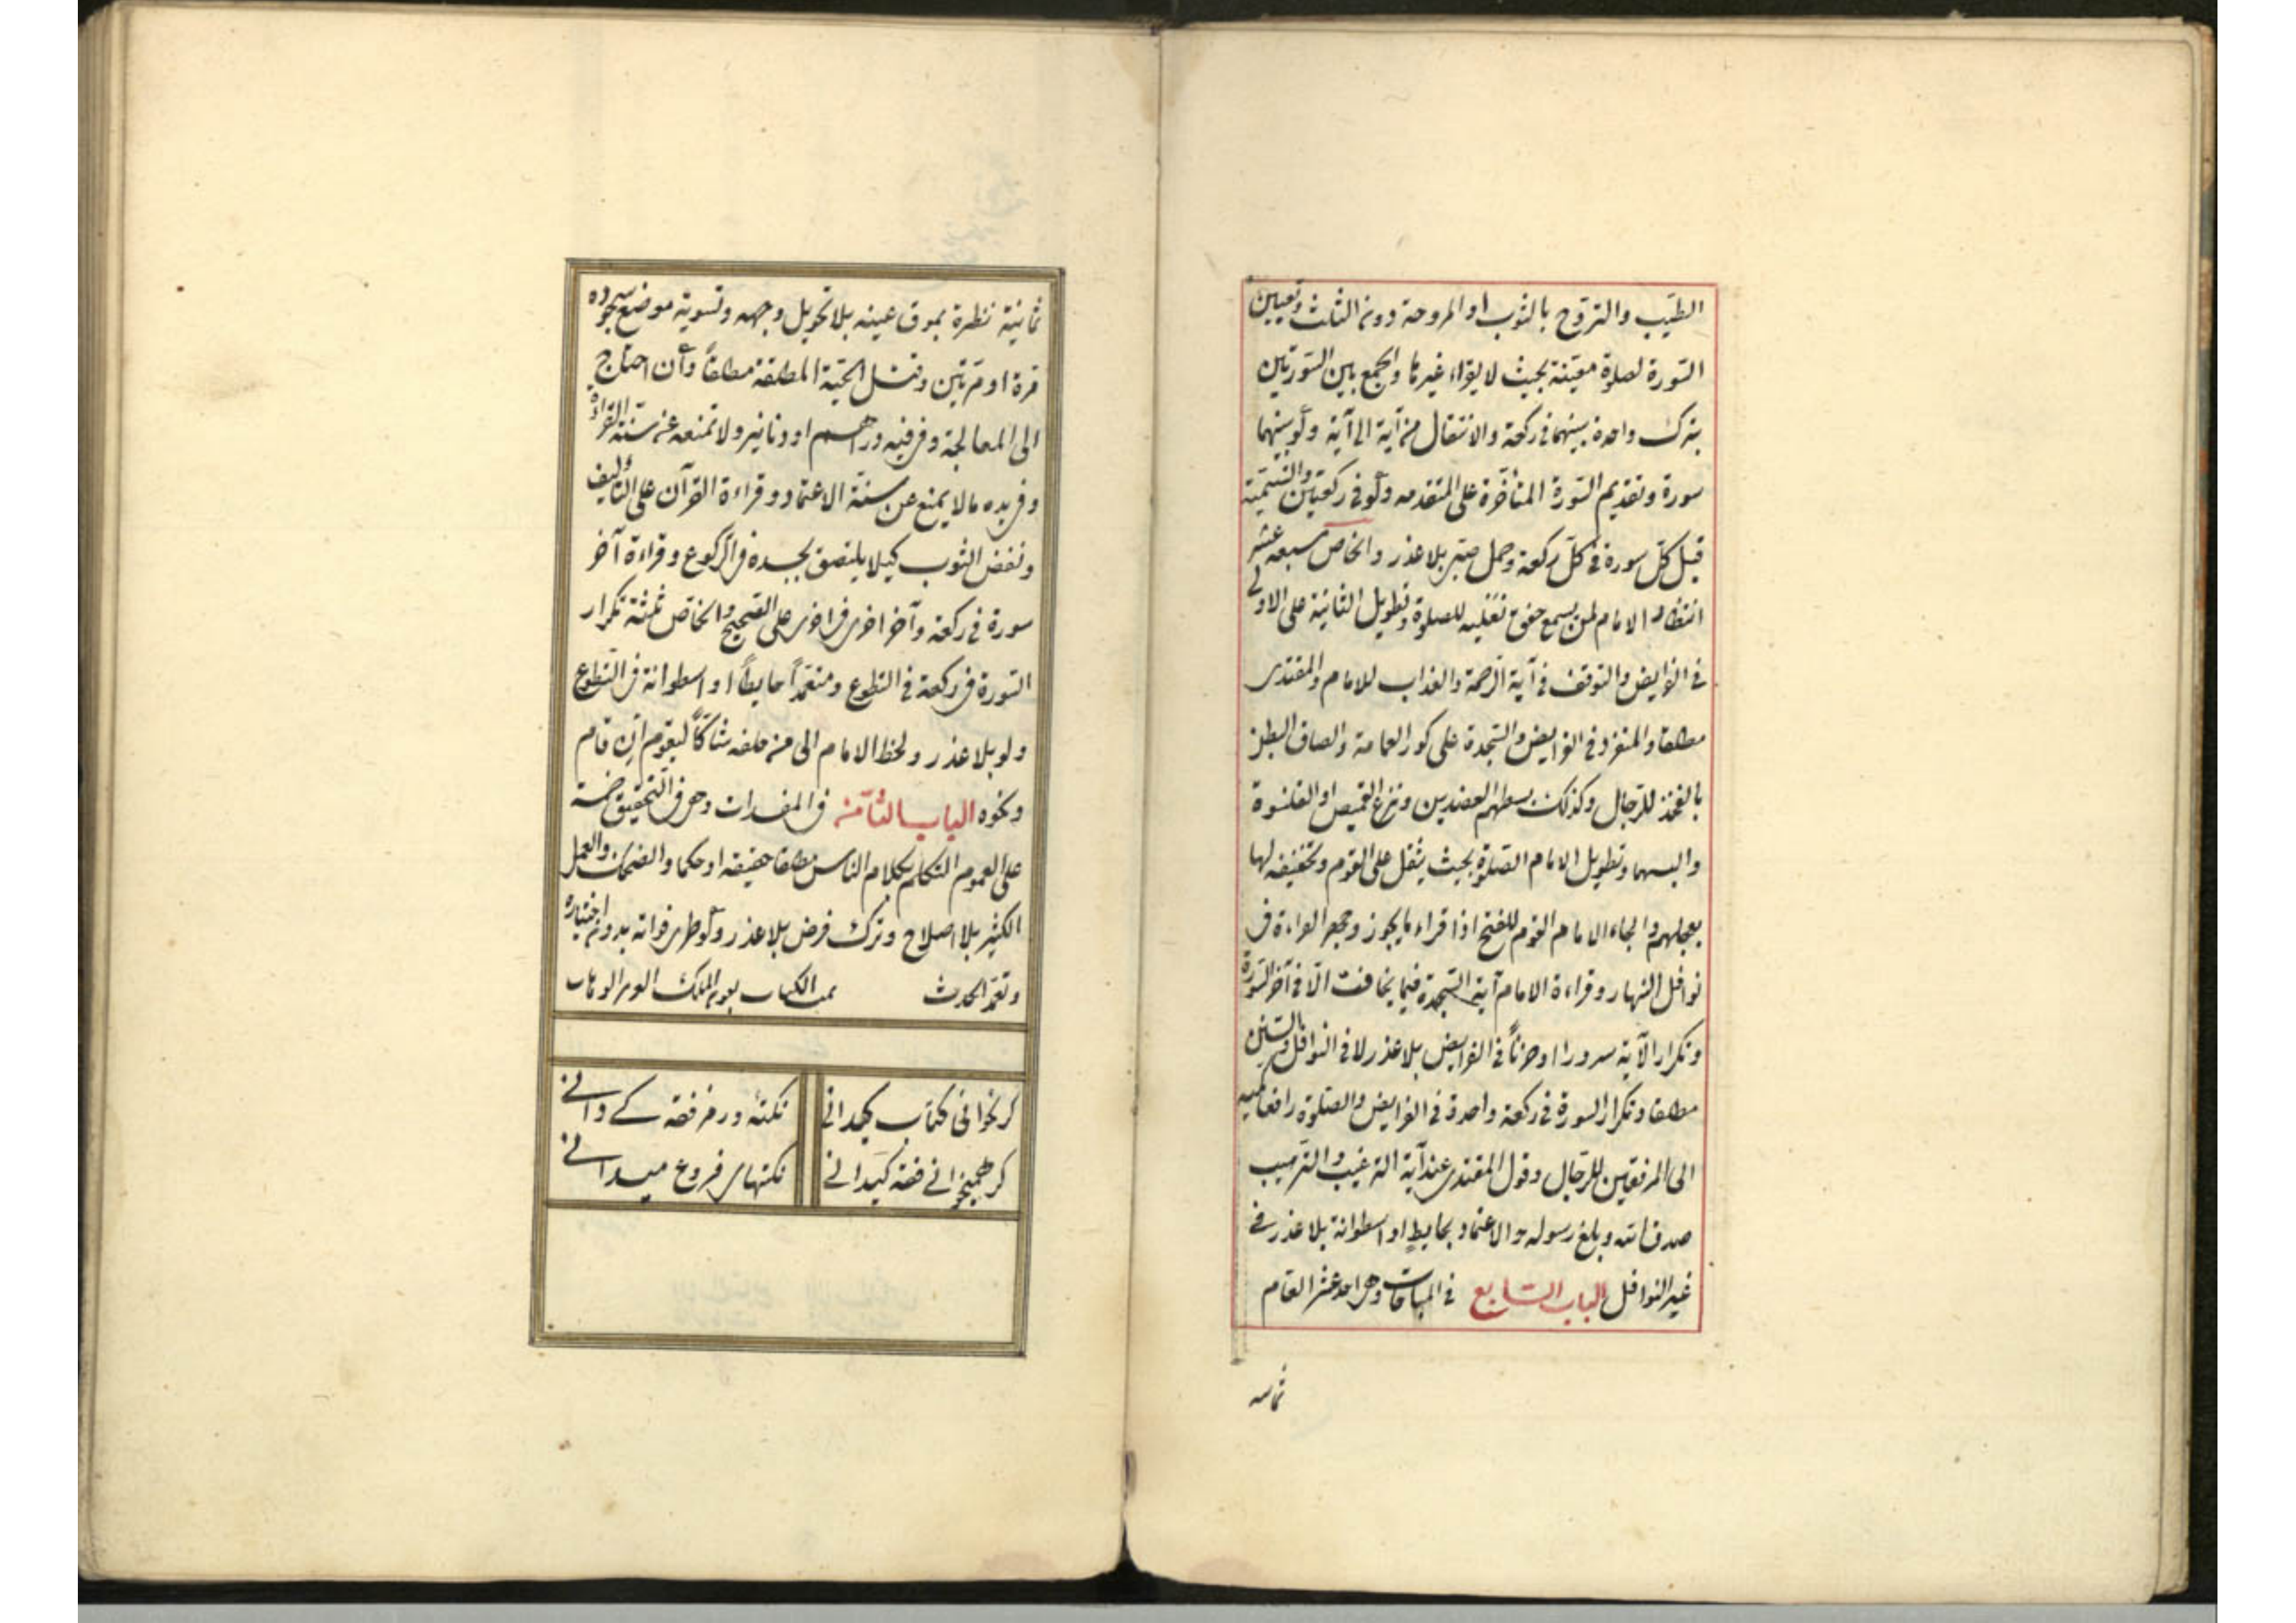 الطيب والتروح بالثوب او المروحة دون الثلث وتعيين
السّورة لصلوة معيّنة بحيث لا يقراء غيرها والجمع بين السّورتين
بترك واحدة بينهما فى ركعة والانتقال من آية الى آية ولو بينهما
سورة وتقديم السّورة المتأخّرة على المتقدمه ولو فى ركعتين والتسمية
قبل كلّ سورة فى كلّ ركعة وحمل صبى بلا عذر والخاص سبعه عشر
انتظار الامام لمن يسمع خفق نعليه للصلوة وتطويل الثانية على الاولى
فى الفرايض والتوقف فى آية الرّحمة والعذاب للامام والمقتدى
مطلقا والمنفرد فى الفرايض والسّجدة على كور العمامة والصاق البطن
بالفخذ للرّجال وكذلك بسطهم العضدين ونزع القميص او القلنسوة
والبسهما وتطويل الامام الصّلوة بحيث يثقل على القوم وتخفيفه لها
بعجلهم والجاء الامام القوم للفتح اذا قراء ما يجوز وجهر القراءة فى
نوافل النهار وقراءة الامام آية السّجدة فيما يخافت الّا فى آخر السّورة
وتكرار الآية سرورا او حزناً فى الفرايض بلا عذر لا فى النوافل والسّنن
مطلقا وتكرار السورة فى ركعة واحدة فى الفرايض والصّلوة رافعا كميه
الى المرفقين للرّجال وقول المقتدى عند آية الترغيب والترهيب
صدق الله وبلغ رسوله والاعتماد بحايطٍ او اسطوانة بلا عذر فى
غير النوافل الباب السّابع فى المباحات وهى احد عشر العام
ثمانية نظرة بموق عينه بلا تحويل وجهه وتسوية موضع سجوده
مرة او مرّتين وقتل الحيّة المطلقة مطلقاً وان احتاج
الى المعالجة وفى فيه دراهم او دنانير ولا تمنعه عن سنّة القراءة
وفى يده ما لا يمنع عن سنّة الاعتماد وقراءة القرآن على التأليف
ونفض الثوب كيلا يلتصق بجسده فى الرّكوع وقراءة آخر
سورة فى ركعة وآخر اخرى فى اخرى على الصّحيح والخاصّ ثلثة تكرار
السّورة فى ركعة فى التطوع ومتعمّداً حايطاً او اسطوانة فى التّطوع
ولو بلا عذر ولحظ الامام الى من خلفه شاكّاً ليقوم ان قام
ونحوه الباب الثّامن فى المفسدات وهى فى التّحقيق خمسة
على العموم التكلم بكلام الناس مطلقا حقيقه او حكما والضحك والعمل
الكثير بلا اصلاح وترك فرض بلا عذر ولو طرى فواته بدون اختياره
وتعمّد الحدث تمت الكتاب بعون الملك الوهاب
كر نخوانى كتاب كيدانى نكتهٔ در فن فقه كے دانے
كر هميخوانے فقه كيدانے نكتهاى فروع ميدانے